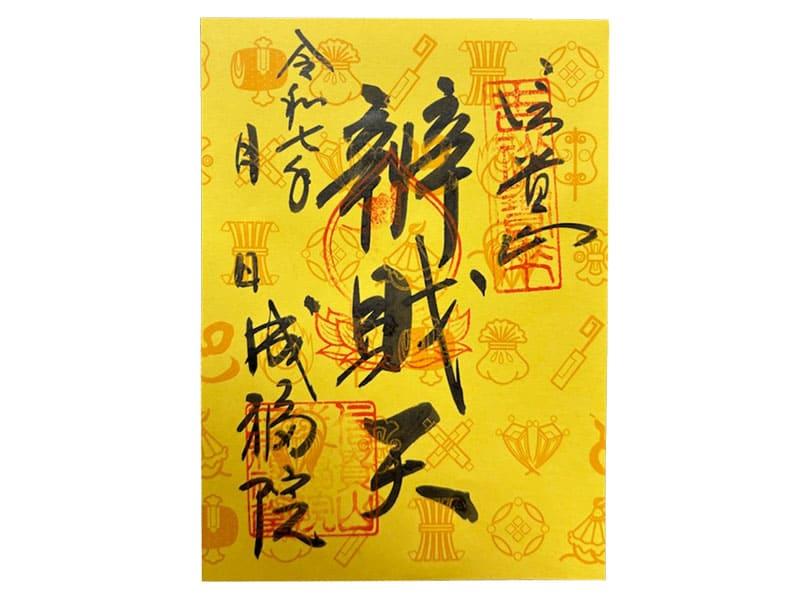 信貴山
辨財天
令和七年
月 日
成福院